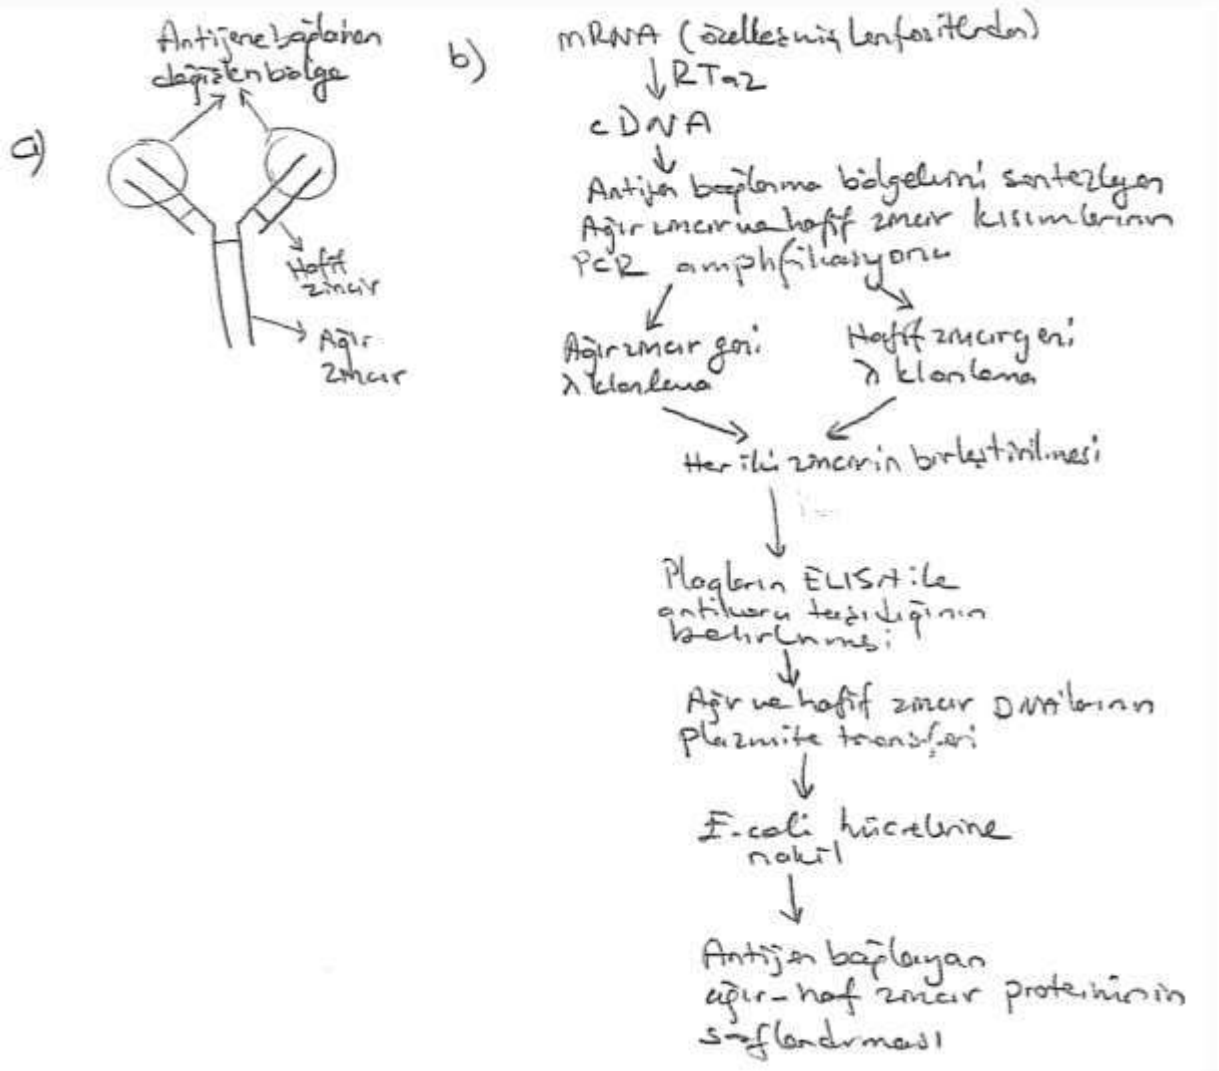 a)
Antijene bağlanan
değişken bölge
Hafif
zincir
Ağır
zincir
b)
mRNA (özelleşmiş lenfositlerden)
RTaz
cDNA
Antijen bağlanma bölgelerini sentezleyen
Ağır zincir ve hafif zincir kısımlarının
PCR amplifikasyonu
Ağır zincir geni
λ klonlama
Hafif zincir geni
λ klonlama
Her iki zincirin birleştirilmesi
Plağların ELISA ile
antikoru taşıdığının
belirlenmesi
Ağır ve hafif zincir DNA'larının
plazmite transferi
E.coli hücrelerine
nakil
Antijen bağlayan
ağır-haf zincir proteininin
saflandırması